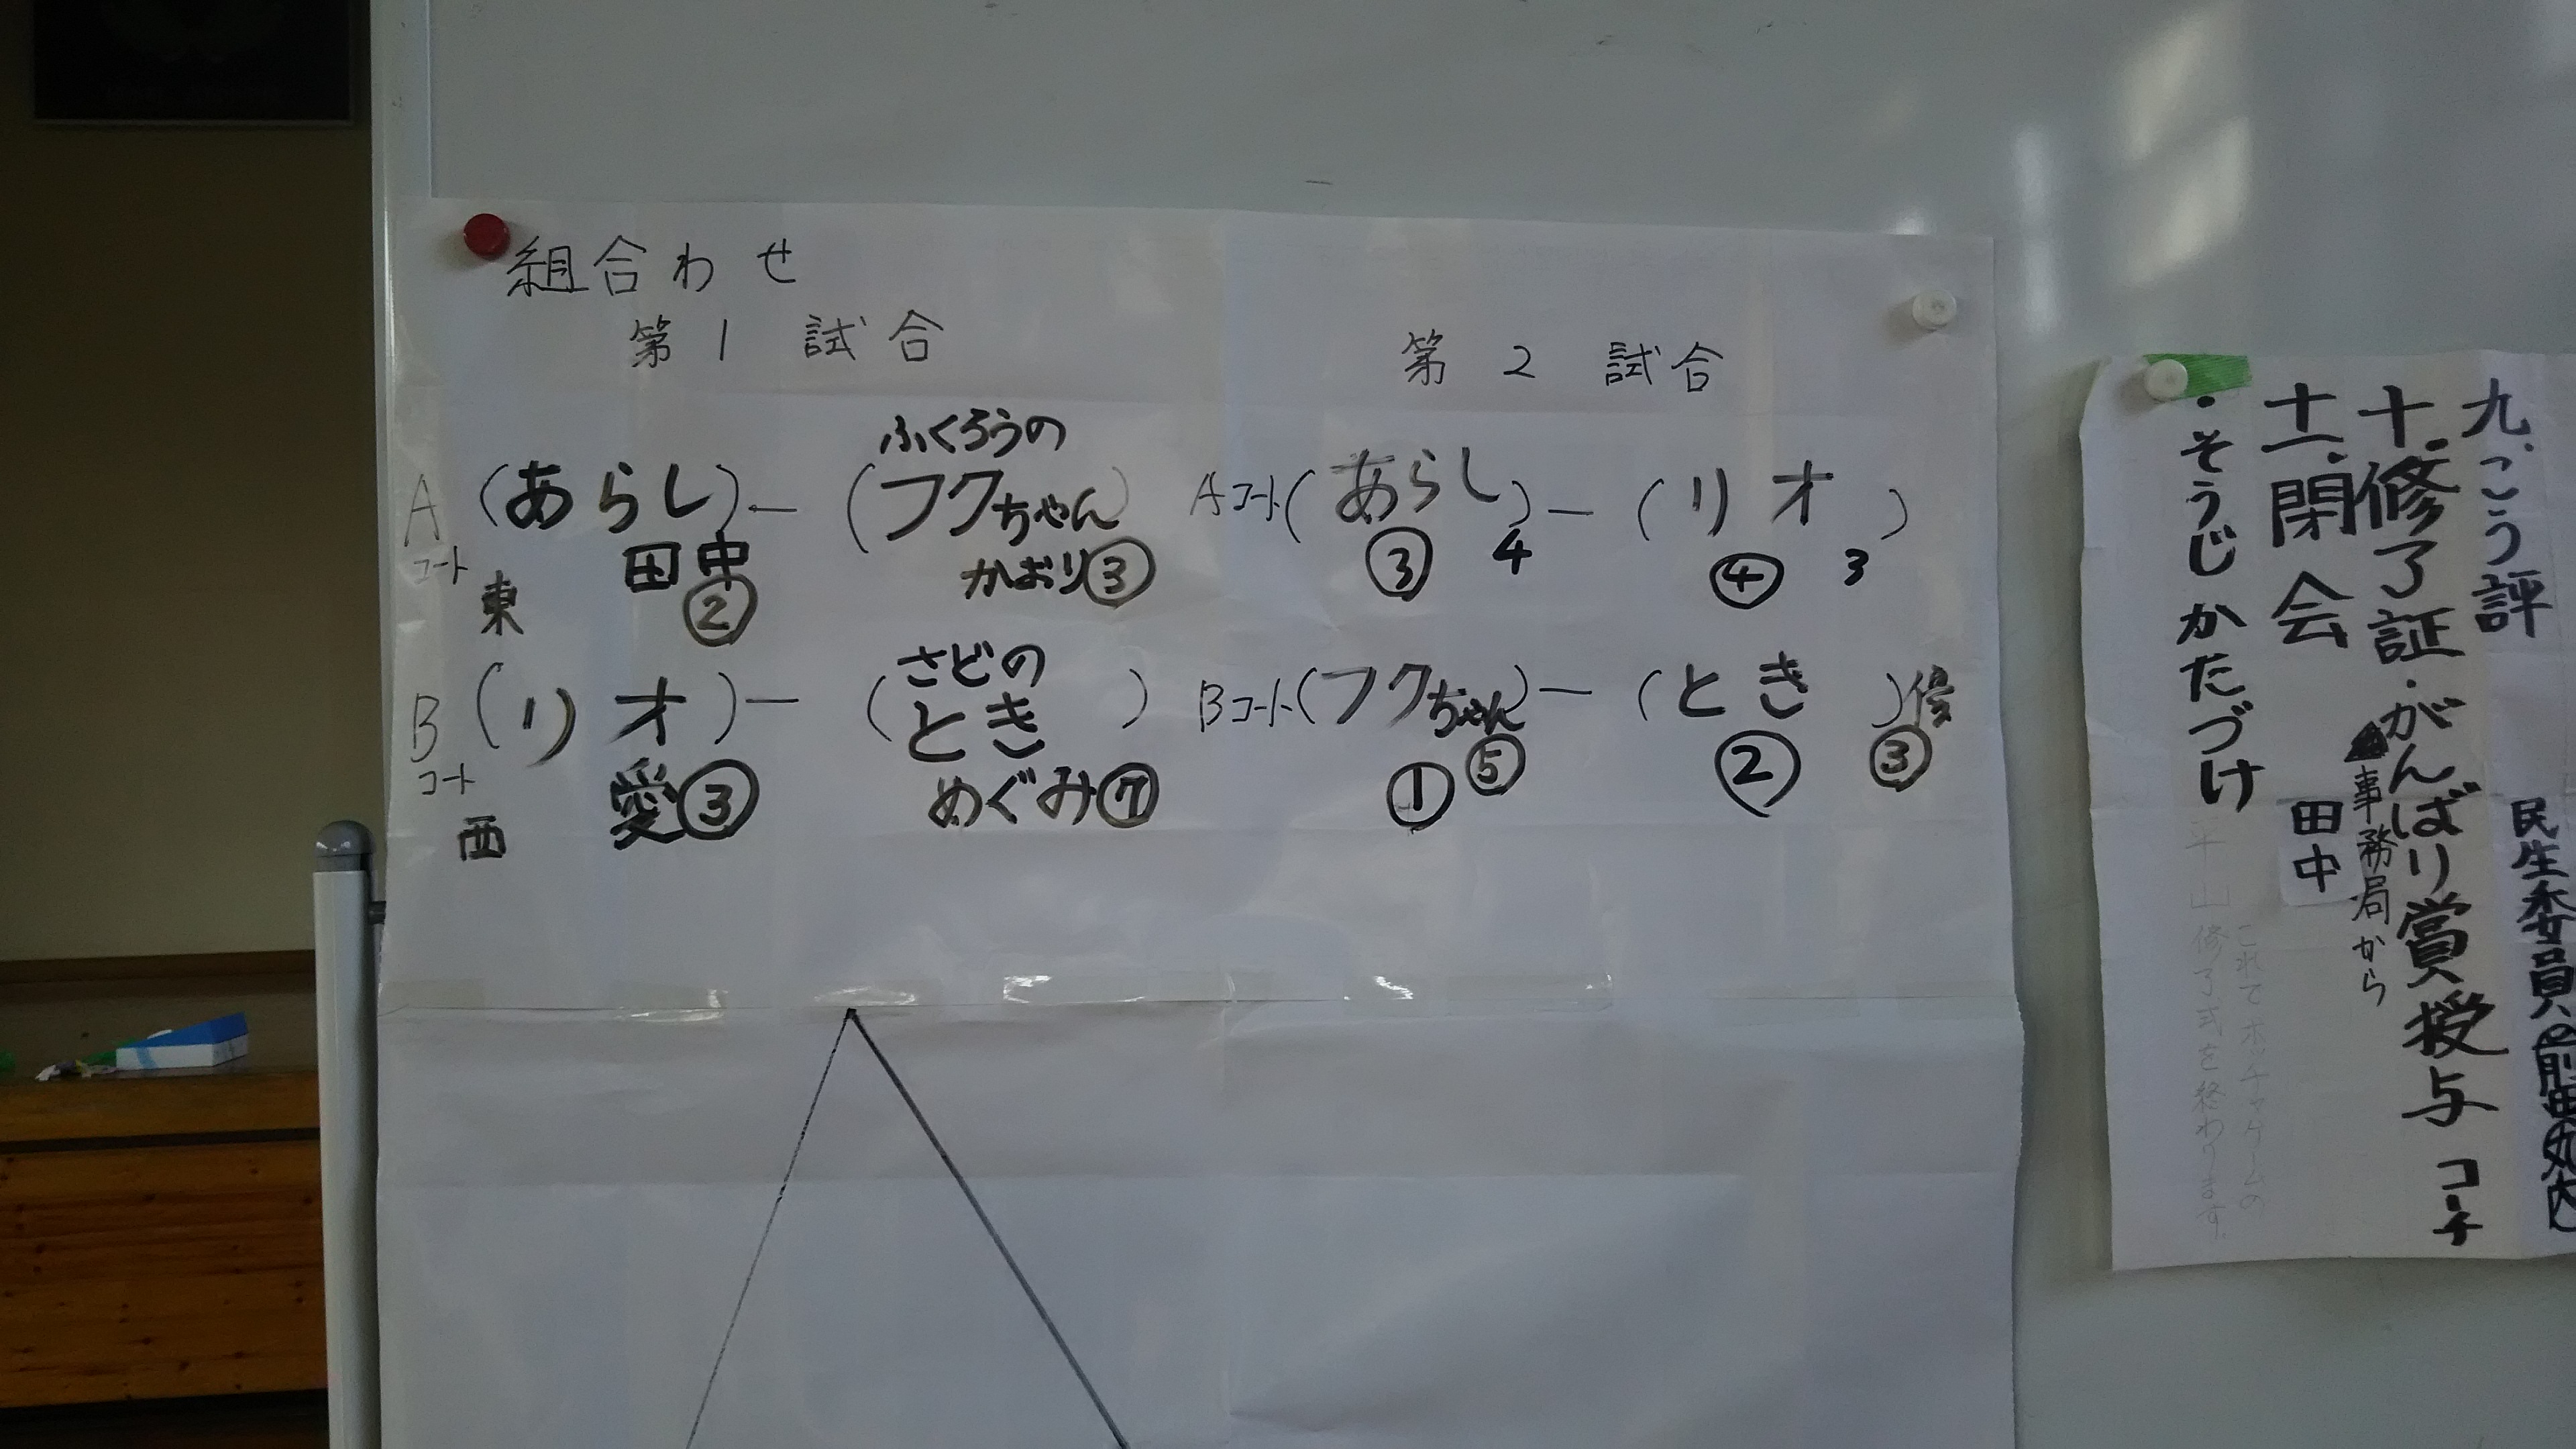 組合わせ
第1試合
第2試合
Aコート
東
(あらし)―(ふくろうのフクちゃん)
田中②
かおり③
Aコート(あらし)―(リオ)
③ 4
④ 3
Bコート
西
(リオ)―(さどのとき)
愛③
めぐみ⑦
Bコート(フクちゃん)―(とき)優
① ⑤
② ③
九、こう評
民生委員
十.修了証・がんばり賞授与 コーチ
事務局から
十一.閉会
田中
・そうじかたづけ
これでボッチャゲームの
修了式を終わります。
平山